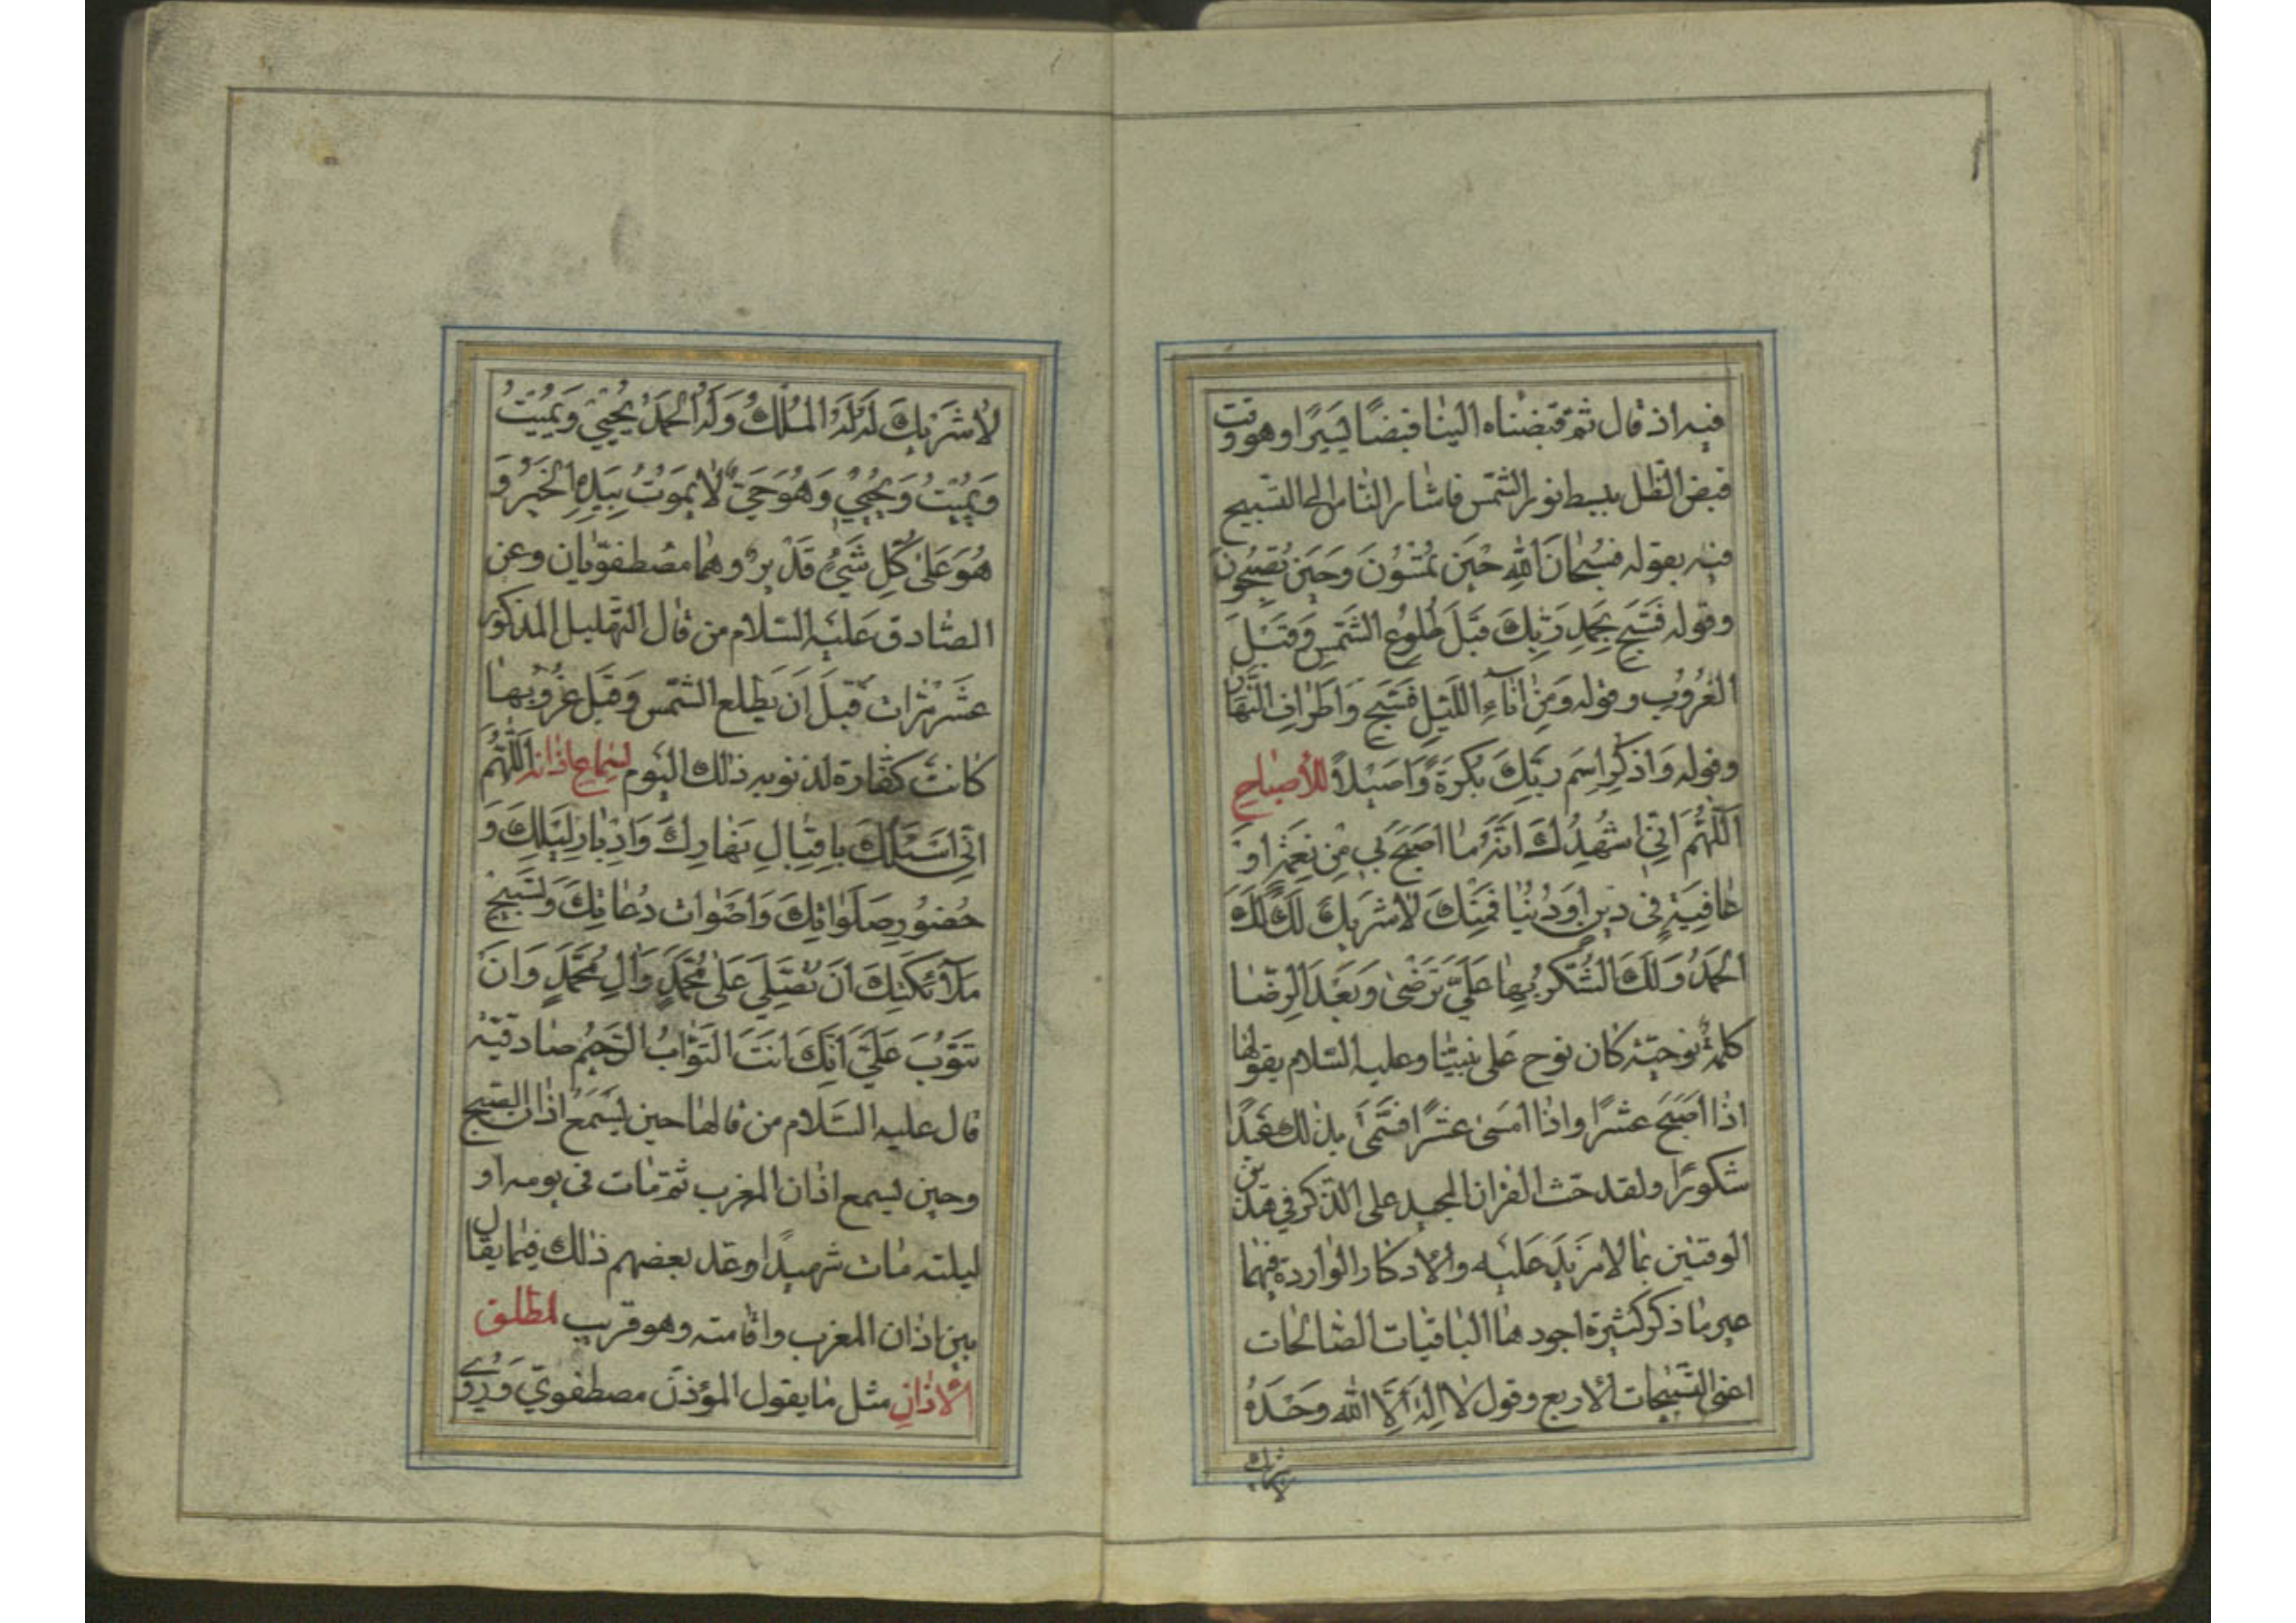 فيه اذ قال ثم قبضناه الينا قبضًا يسيرًا وهو وقت
قبض الظل ببسط نور الشمس فاشار الناس الى التسبيح
فيه بقوله فَسُبْحانَ اللهِ حينَ تُمْسُونَ وَحينَ تُصْبِحُونَ
وقوله فَسَبِّح بِحَمدِ رَبِّكَ قَبلَ طُلُوعِ الشَّمسِ وَقَبْلَ
الغُرُوبِ وقوله وَمِنْ اناءِ اللَّيلِ فَسَبِّح وَاَطْرافَ النَّهارِ
وقوله وَاذكُرِ اسمَ رَبِّكَ بُكرَةً وَاَصيلًا للأصباح
اَللّهُمَّ اِنّى اُشْهِدُكَ اَنَّهُ ما اَصبَحَ بى مِنْ نِعمَةٍ اَوْ
عافِيَةٍ فى دينٍ اَو دُنْيا فَمِنْكَ لا شَريكَ لَكَ لَكَ
الحَمدُ وَلَكَ الشُّكرُ بِها عَلَيَّ تَرضى وَبَعدَ الرِّضا
كلمة نوحيّة كان نوح على نبينا وعليه السلام يقولها
اذا اصبح عشرًا واذا امسى عشرًا فسمّى بذلك عَبدًا
شكورًا ولقد حث القران المجيد على الذكر فى هذين
الوقتين بما لا مزيد عليه والاذكار الواردة فيهما
غير ما ذكر كثيرة اجودها الباقيات الصالحات
اعنى التسبيحات الأربع وقول لا اِلهَ اِلَّا الله وَحْدَهُ
لا شريك
لا شَريكَ لَهُ لَهُ المُلْكُ وَلَهُ الحَمدُ يُحْيى وَيُميتُ
وَيُميتُ وَيُحْيى وَهُوَ حَيٌّ لا يَمُوتُ بِيَدِهِ الخَيرُ وَ
هُوَ عَلى كُلِّ شَيْءٍ قَديرٌ وهما مصطفويّان وعن
الصادق عليه السلام من قال التهليل المذكور
عَشْرَ مَرّات قَبلَ اَن يَطلع الشمس وَقَبل غُرُوبها
كانت كفّارة لذنوبه ذلك اليوم لسماع اذانه اَللّهُمَّ
اِنّى اَسْئَلُكَ بِاِقبالِ نَهارِكَ وَاِدْبارِ لَيْلِكَ وَ
حُضُورِ صَلَواتِكَ وَاَصْواتِ دُعاتِكَ وَتَسبيحِ
مَلآئِكَتِكَ اَن تُصَلِّيَ عَلى مُحَمَّدٍ وَالِ مُحَمَّدٍ وَاَن
تَتُوبَ عَلَيَّ اِنَّكَ اَنتَ التَّوّابُ الرَّحيمُ صادقيّة
قال عليه السلام من قالها حين يسمع اذان الصبح
وحين يسمع اذان المغرب ثم مات فى يومه او
ليلته مات شهيدًا وعد بعضهم ذلك فيما يقال
بين اذان المغرب واقامته وهو قريب لمطلق
الاذان مثل ما يقول المؤذن مصطفوي وَرُوِيَ